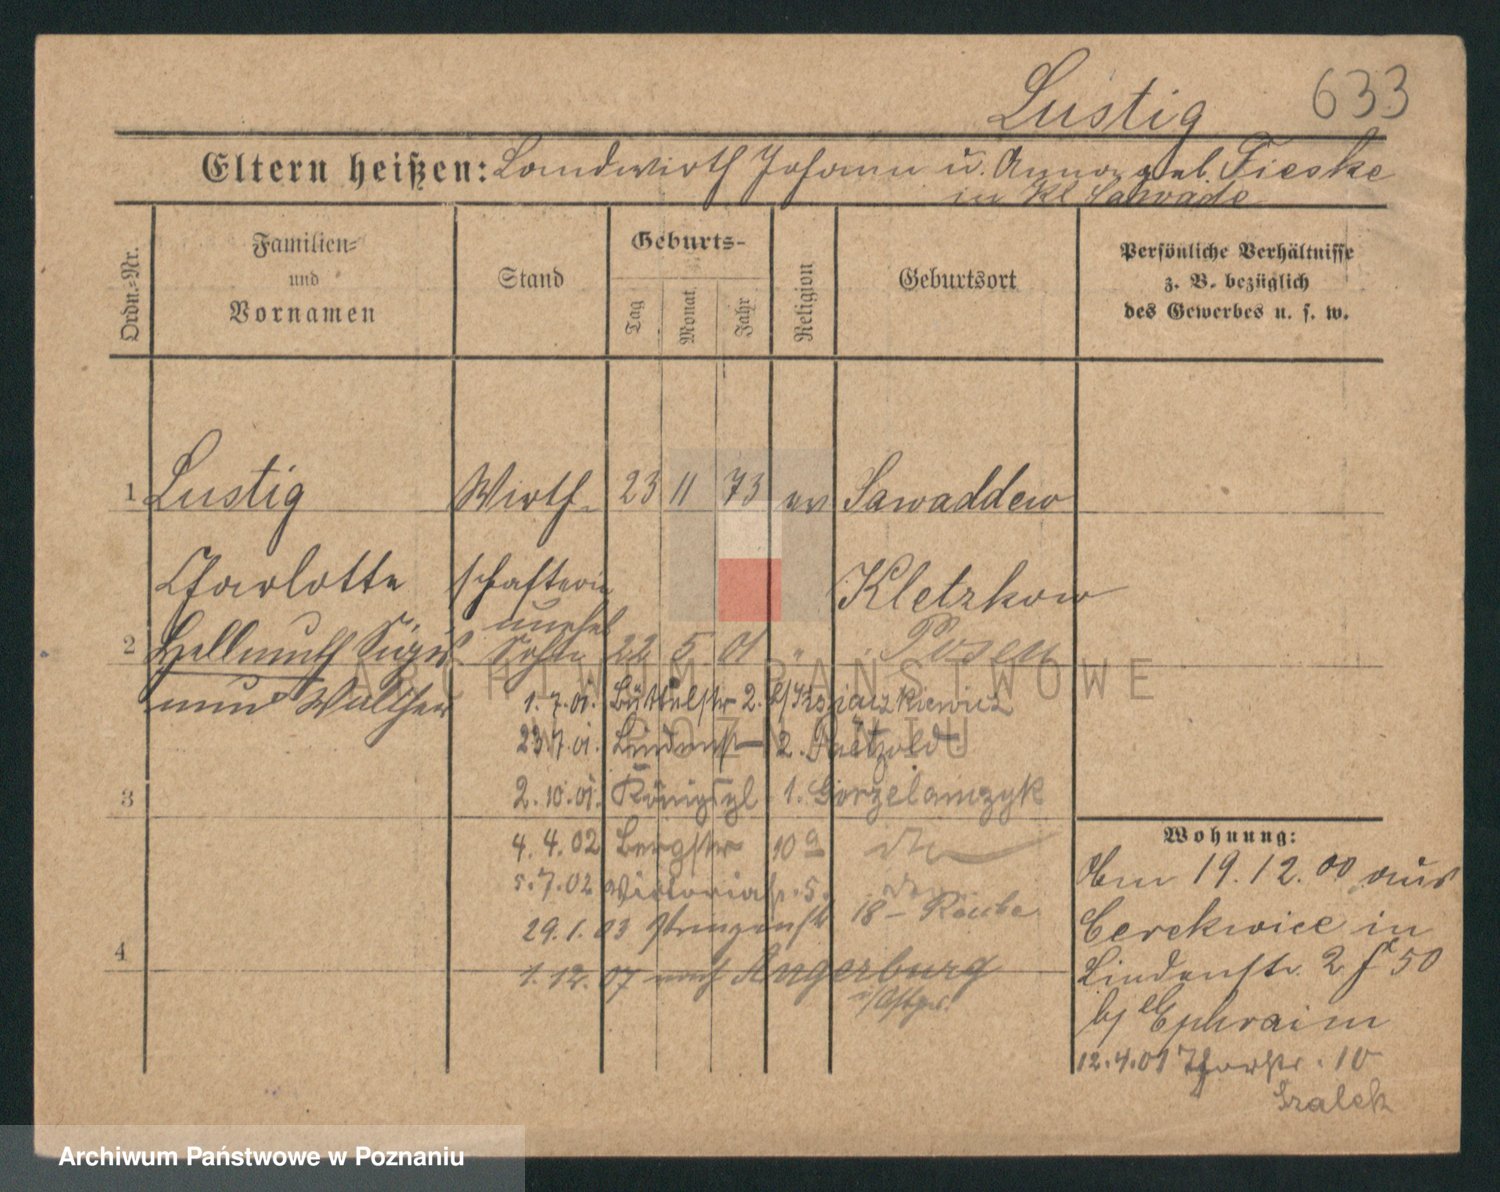 633
Lustig
Eltern heißen: Landwirth Johann u. Anna geb. Fieske
in Kl Sawade
Ordn.-Nr.
Familien-
und
Vornamen
Stand
Geburts-
Tag
Monat
Jahr
Religion
Geburtsort
Persönliche Verhältnisse
z. B. bezüglich
des Gewerbes u. s. w.
1 Lustig Wirth- 23 11 73 ev Sawaddew
Charlotte schafterin Kletzkow
unehel
2 Hellmuth Sigis Sohn 22 5. 01 " Posen
mund Walther
1.7.01. Büttelstr 2. b/
23.7.01. Lindenstr 2. Paetzold
3
2.10.01. Königspl 1. Gorzelanczyk
4.4.02 Bergstr 10a
5.7.02 Victoriastr. 5.
29.1.03 Prinzenstr 18 –
4
1.12.07 nach Angerburg
i/Ostpr.
Wohnung:
Am 19.12.00 aus
Cerekwice in
Lindenstr. 2 50
bj Ephraim
12.4.01 Thorstr. 10
Szalek
ARCHIWUM PAŃSTWOWE
W POZNANIU
Archiwum Państwowe w Poznaniu